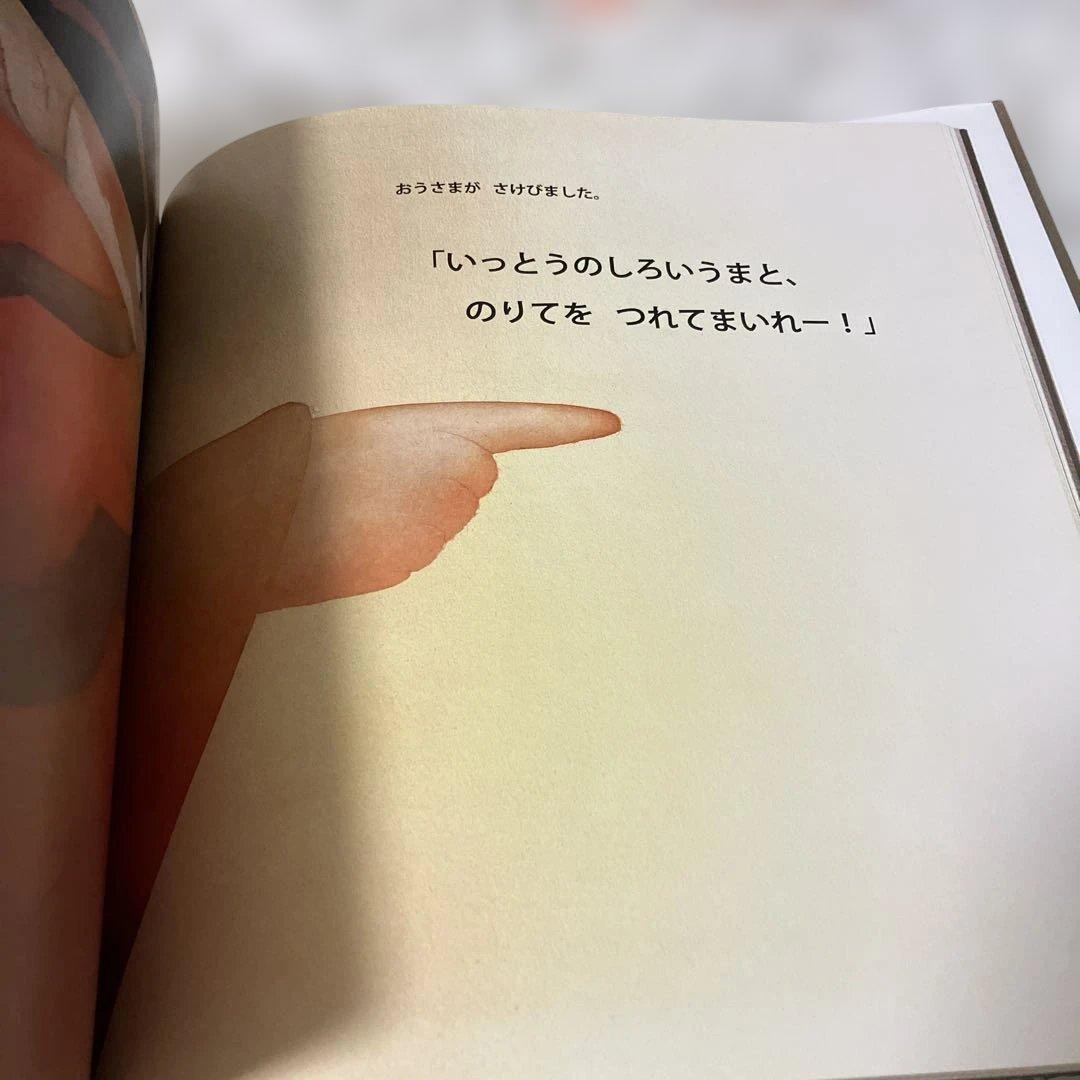 おうさまが さけびました。
「いっとうのしろいうまと、
のりてを つれてまいれー！」